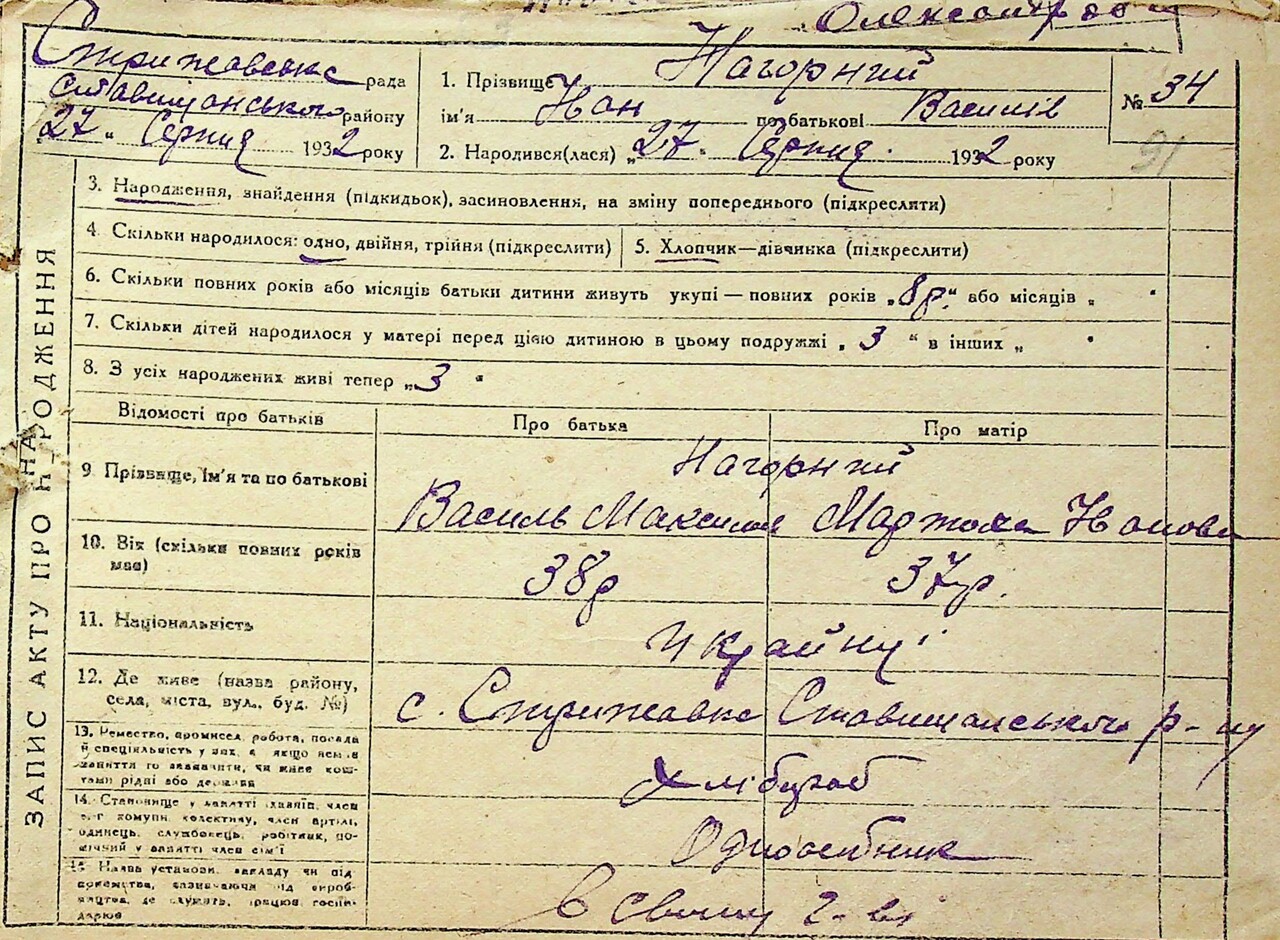 Стрижавське рада
Ставищанського району
27 „ Серпня 1932 року
1. Прізвище Нагорний
ім'я Іван по батькові Василів
2. Народився(лася) „27„ Серпня. 1932 року
№ 34
91
ЗАПИС АКТУ ПРО НАРОДЖЕННЯ
3. Народження, знайдення (підкидьок), засиновлення, на зміну попереднього (підкресляти)
4. Скільки народилося: одно, двійня, трійня (підкреслити)
5. Хлопчик—дівчинка (підкреслити)
6. Скільки повних років або місяців батьки дитини живуть укупі — повних років „8р.“ або місяців „ “
7. Скільки дітей народилося у матері перед цією дитиною в цьому подружжі „ 3 “ в інших „ “
8. З усіх народжених живі тепер „3 “
Відомості про батьків Про батька Про матір
9. Прізвище, ім'я та по батькові
Нагорний
Василь Максимов
10. Вік (скільки повних років має)
38р 37р.
11. Національність
Українці
12. Де живе (назва району,
села, міста, вул., буд. №)
с. Стрижавка Ставищанського р-ну
13. Ремество, промисел, робота, посада
й спеціальність у них, а якщо нема
заняття то зазначити, чи живе кош-
тами рідні або держави
Хлібороб
14. Становище у занятті
комуни, колективу, член артілі,
одинець, службовець, робітник, по-
мічний у занятті член сім'ї
Одноосібник
15. Назва установи, закладу чи під-
приємства, зазначаючи рід вироб-
ництва, де служить, працює, госпо-
дарює
В своему г-ві